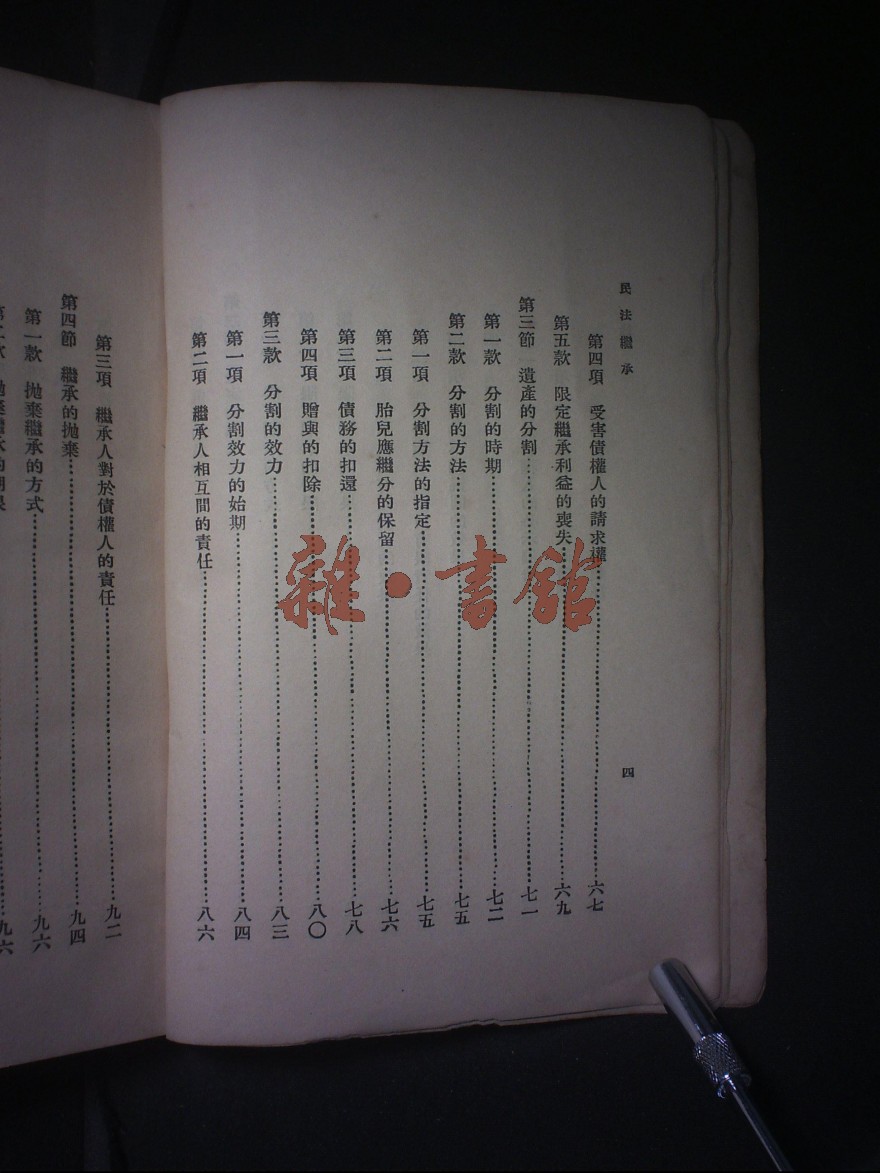 民法繼承
四
第四項 受害債權人的請求權……六七
第五款 限定繼承利益的喪失……六九
第三節 遺產的分割……七一
第一款 分割的時期……七二
第二款 分割的方法……七五
第一項 分割方法的指定……七五
第二項 胎兒應繼分的保留……七六
第三項 債務的扣還……七八
第四項 贈與的扣除……八〇
第三款 分割的效力……八三
第一項 分割效力的始期……八四
第二項 繼承人相互間的責任……八六
第三項 繼承人對於債權人的責任……九二
第四節 繼承的拋棄……九四
第一款 拋棄繼承的方式……九六
雜·書館